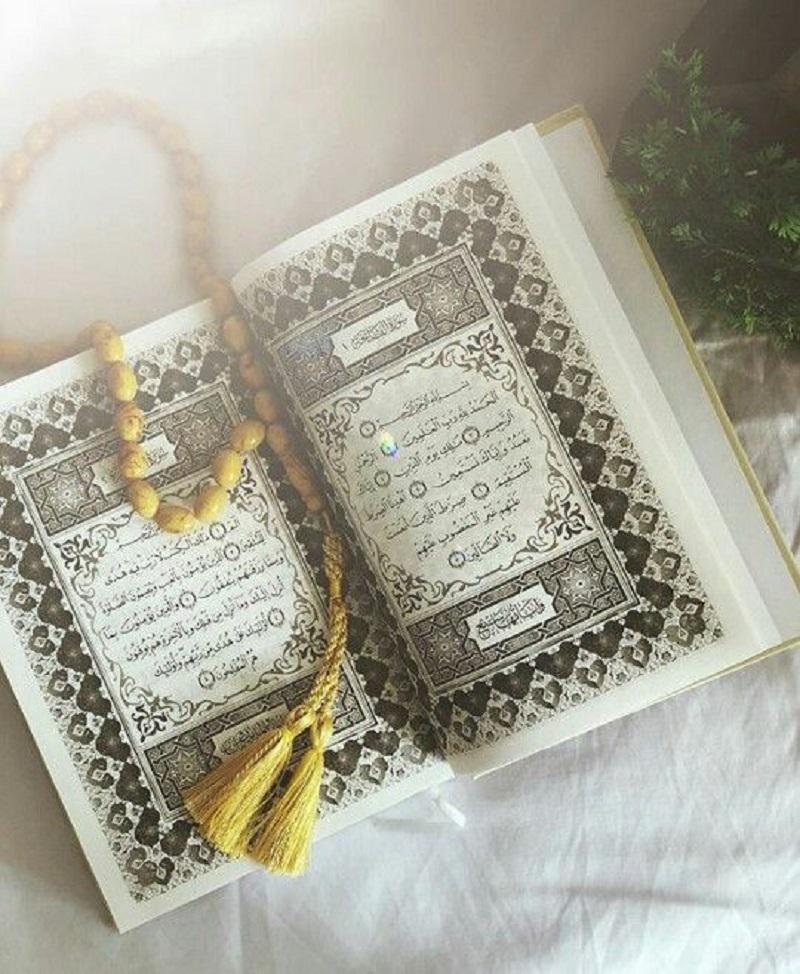 سورة الفاتحة ١
بسم الله الرحمن الرحيم
الحمد لله رب العالمين الرحمن
الرحيم ملك يوم الدين إياك
نعبد وإياك نستعين اهدنا الصراط
المستقيم صراط الذين أنعمت
عليهم غير المغضوب عليهم
ولا الضالين
سورة
الرحيم
الم ذلك الكتاب لا ريب فيه هدى
للمتقين الذين يؤمنون بالغيب ويقيمون الصلوة
ومما رزقنهم ينفقون والذين يؤمنون بما
أنزل إليك وما أنزل من قبلك وبالآخرة هم يوقنون
أولئك على هدى من ربهم وأولئك
هم المفلحون